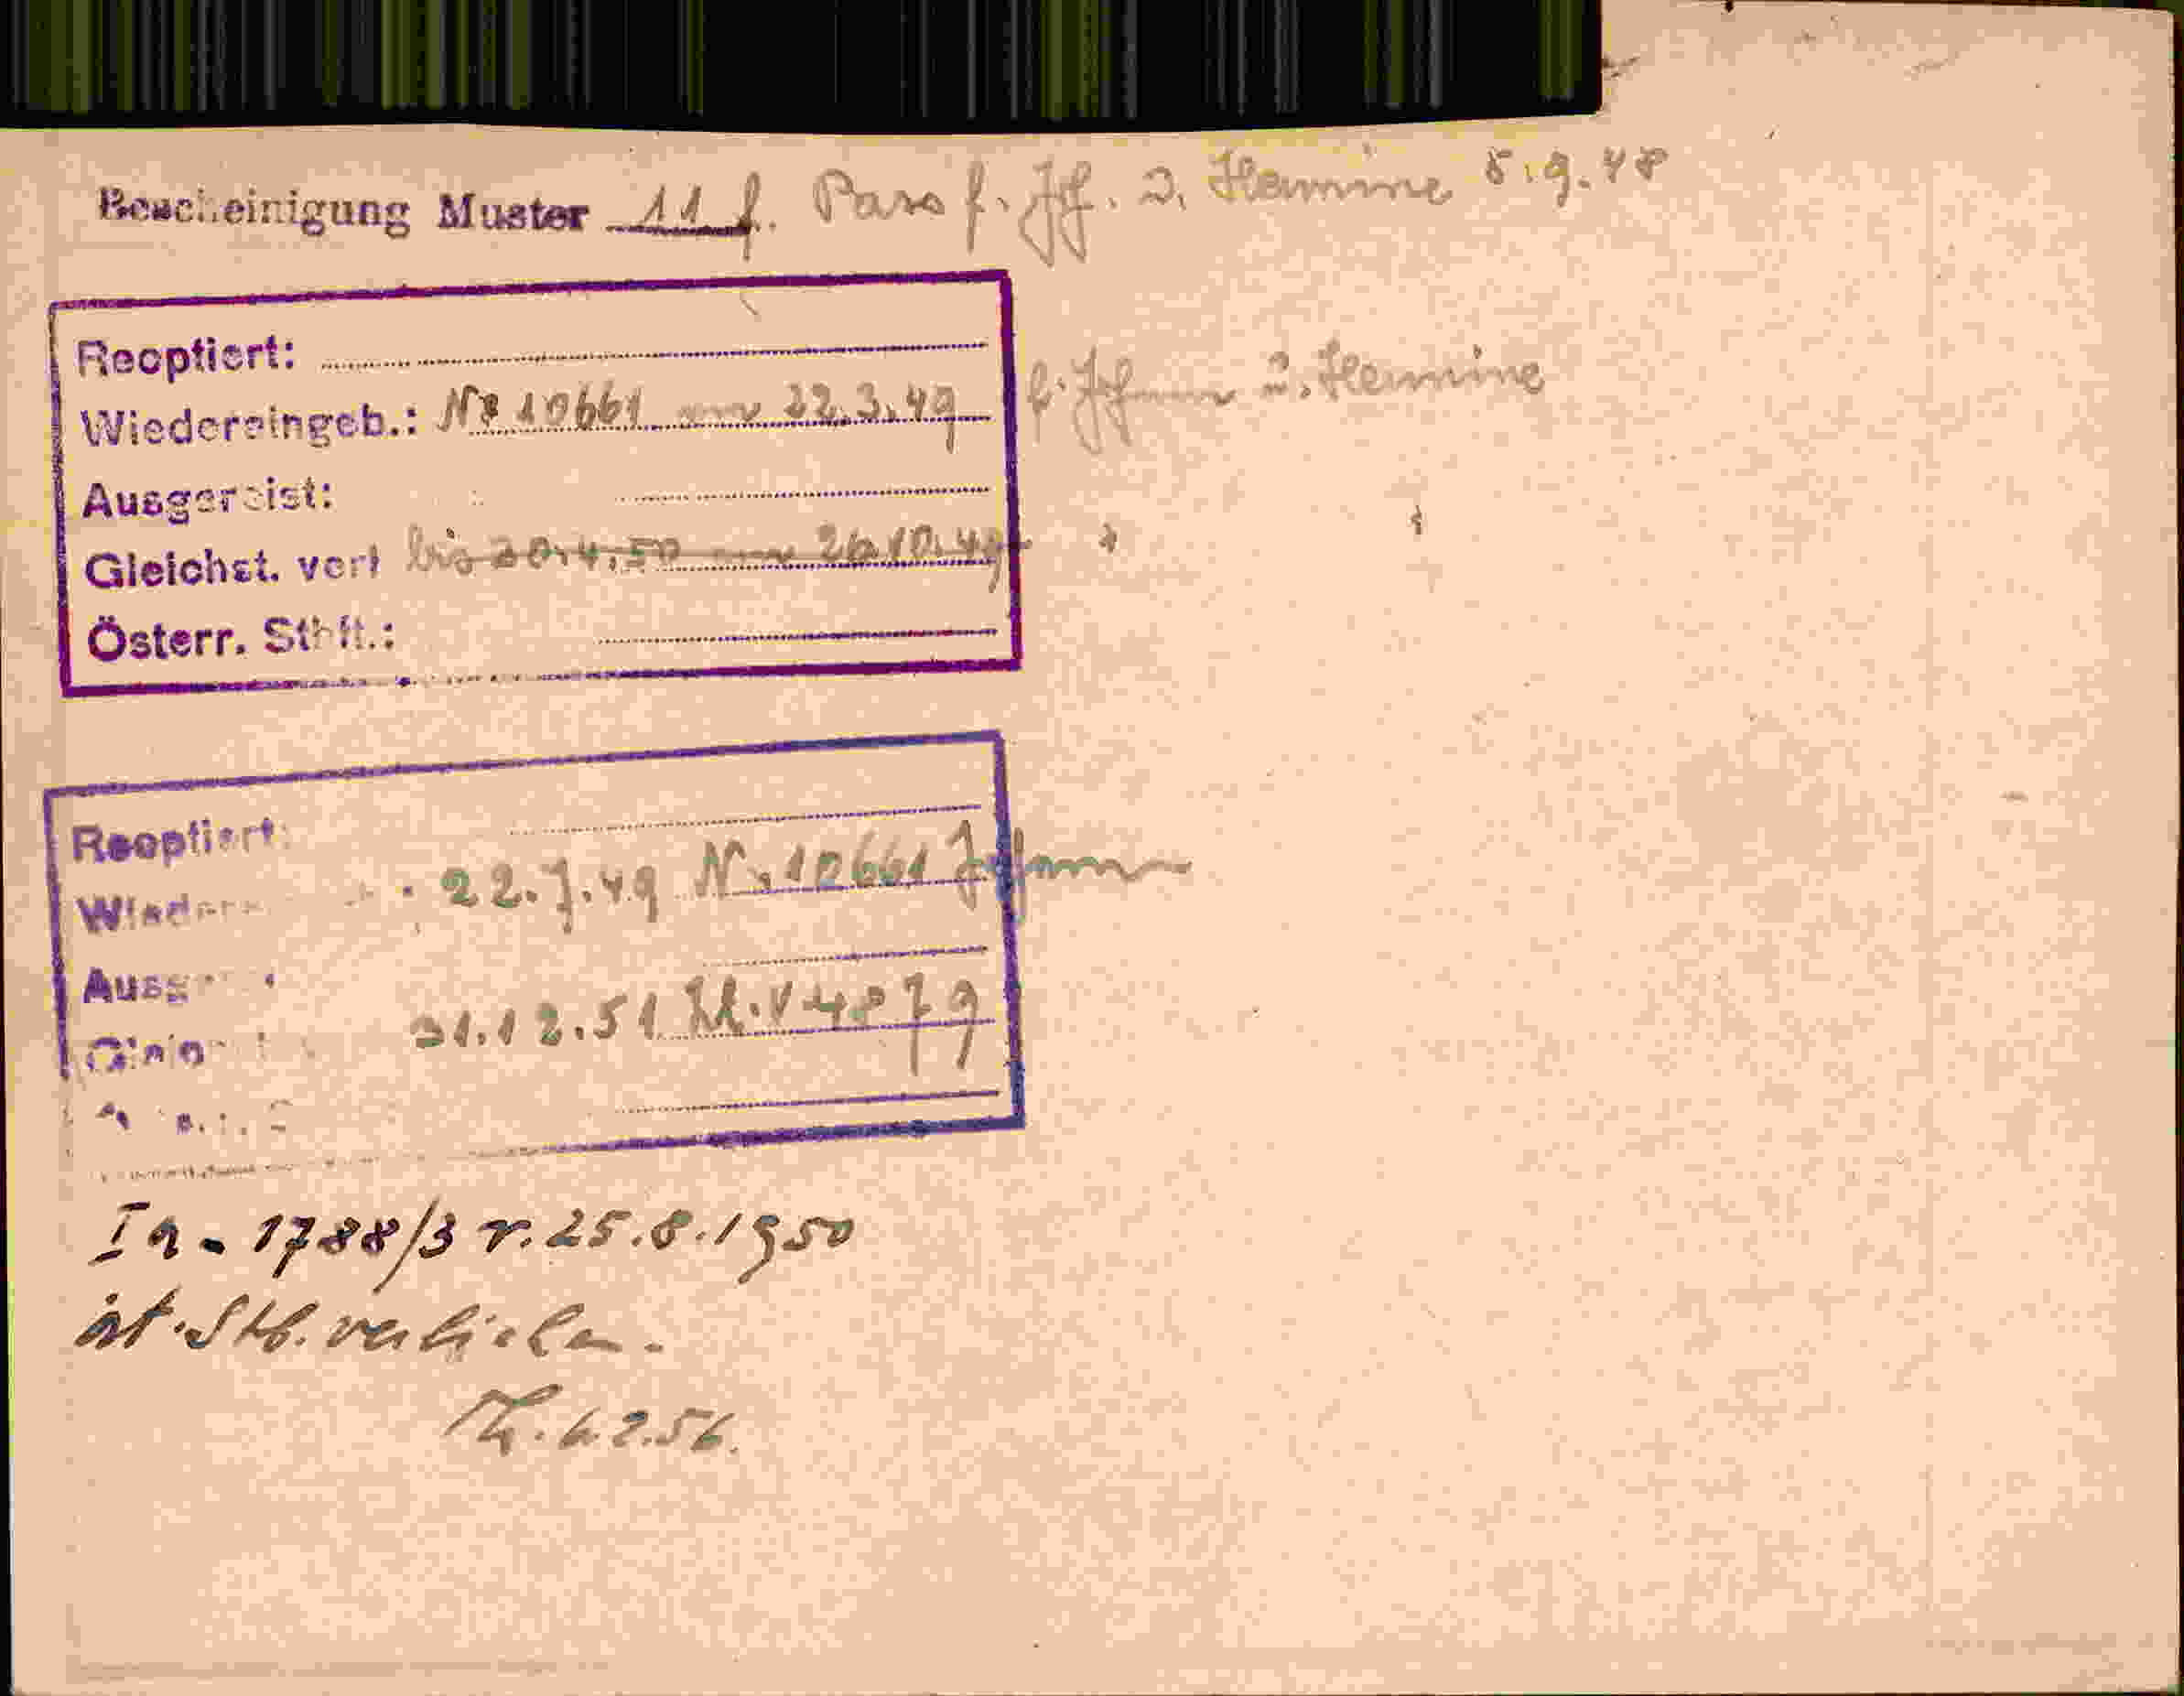 Bescheinigung Muster 11 f. Pass f. Joh. u. Hermine 5.9.48
Reoptiert:
Wiedereingeb.: Nr 10661 vom 22.3.49 f. Johann u. Hermine
Ausgereist:
Gleichst. verl bis 30.4.50 vom 26.10.49
Österr. Stbft.:
Reoptiert:
22.7.49 Nr. 10661 Johann
Ausg
31.12.51 Zl. V-4879
Ia - 1788/3 v. 25.8.1950
öst. Stb. verliehen.
6.2.56.